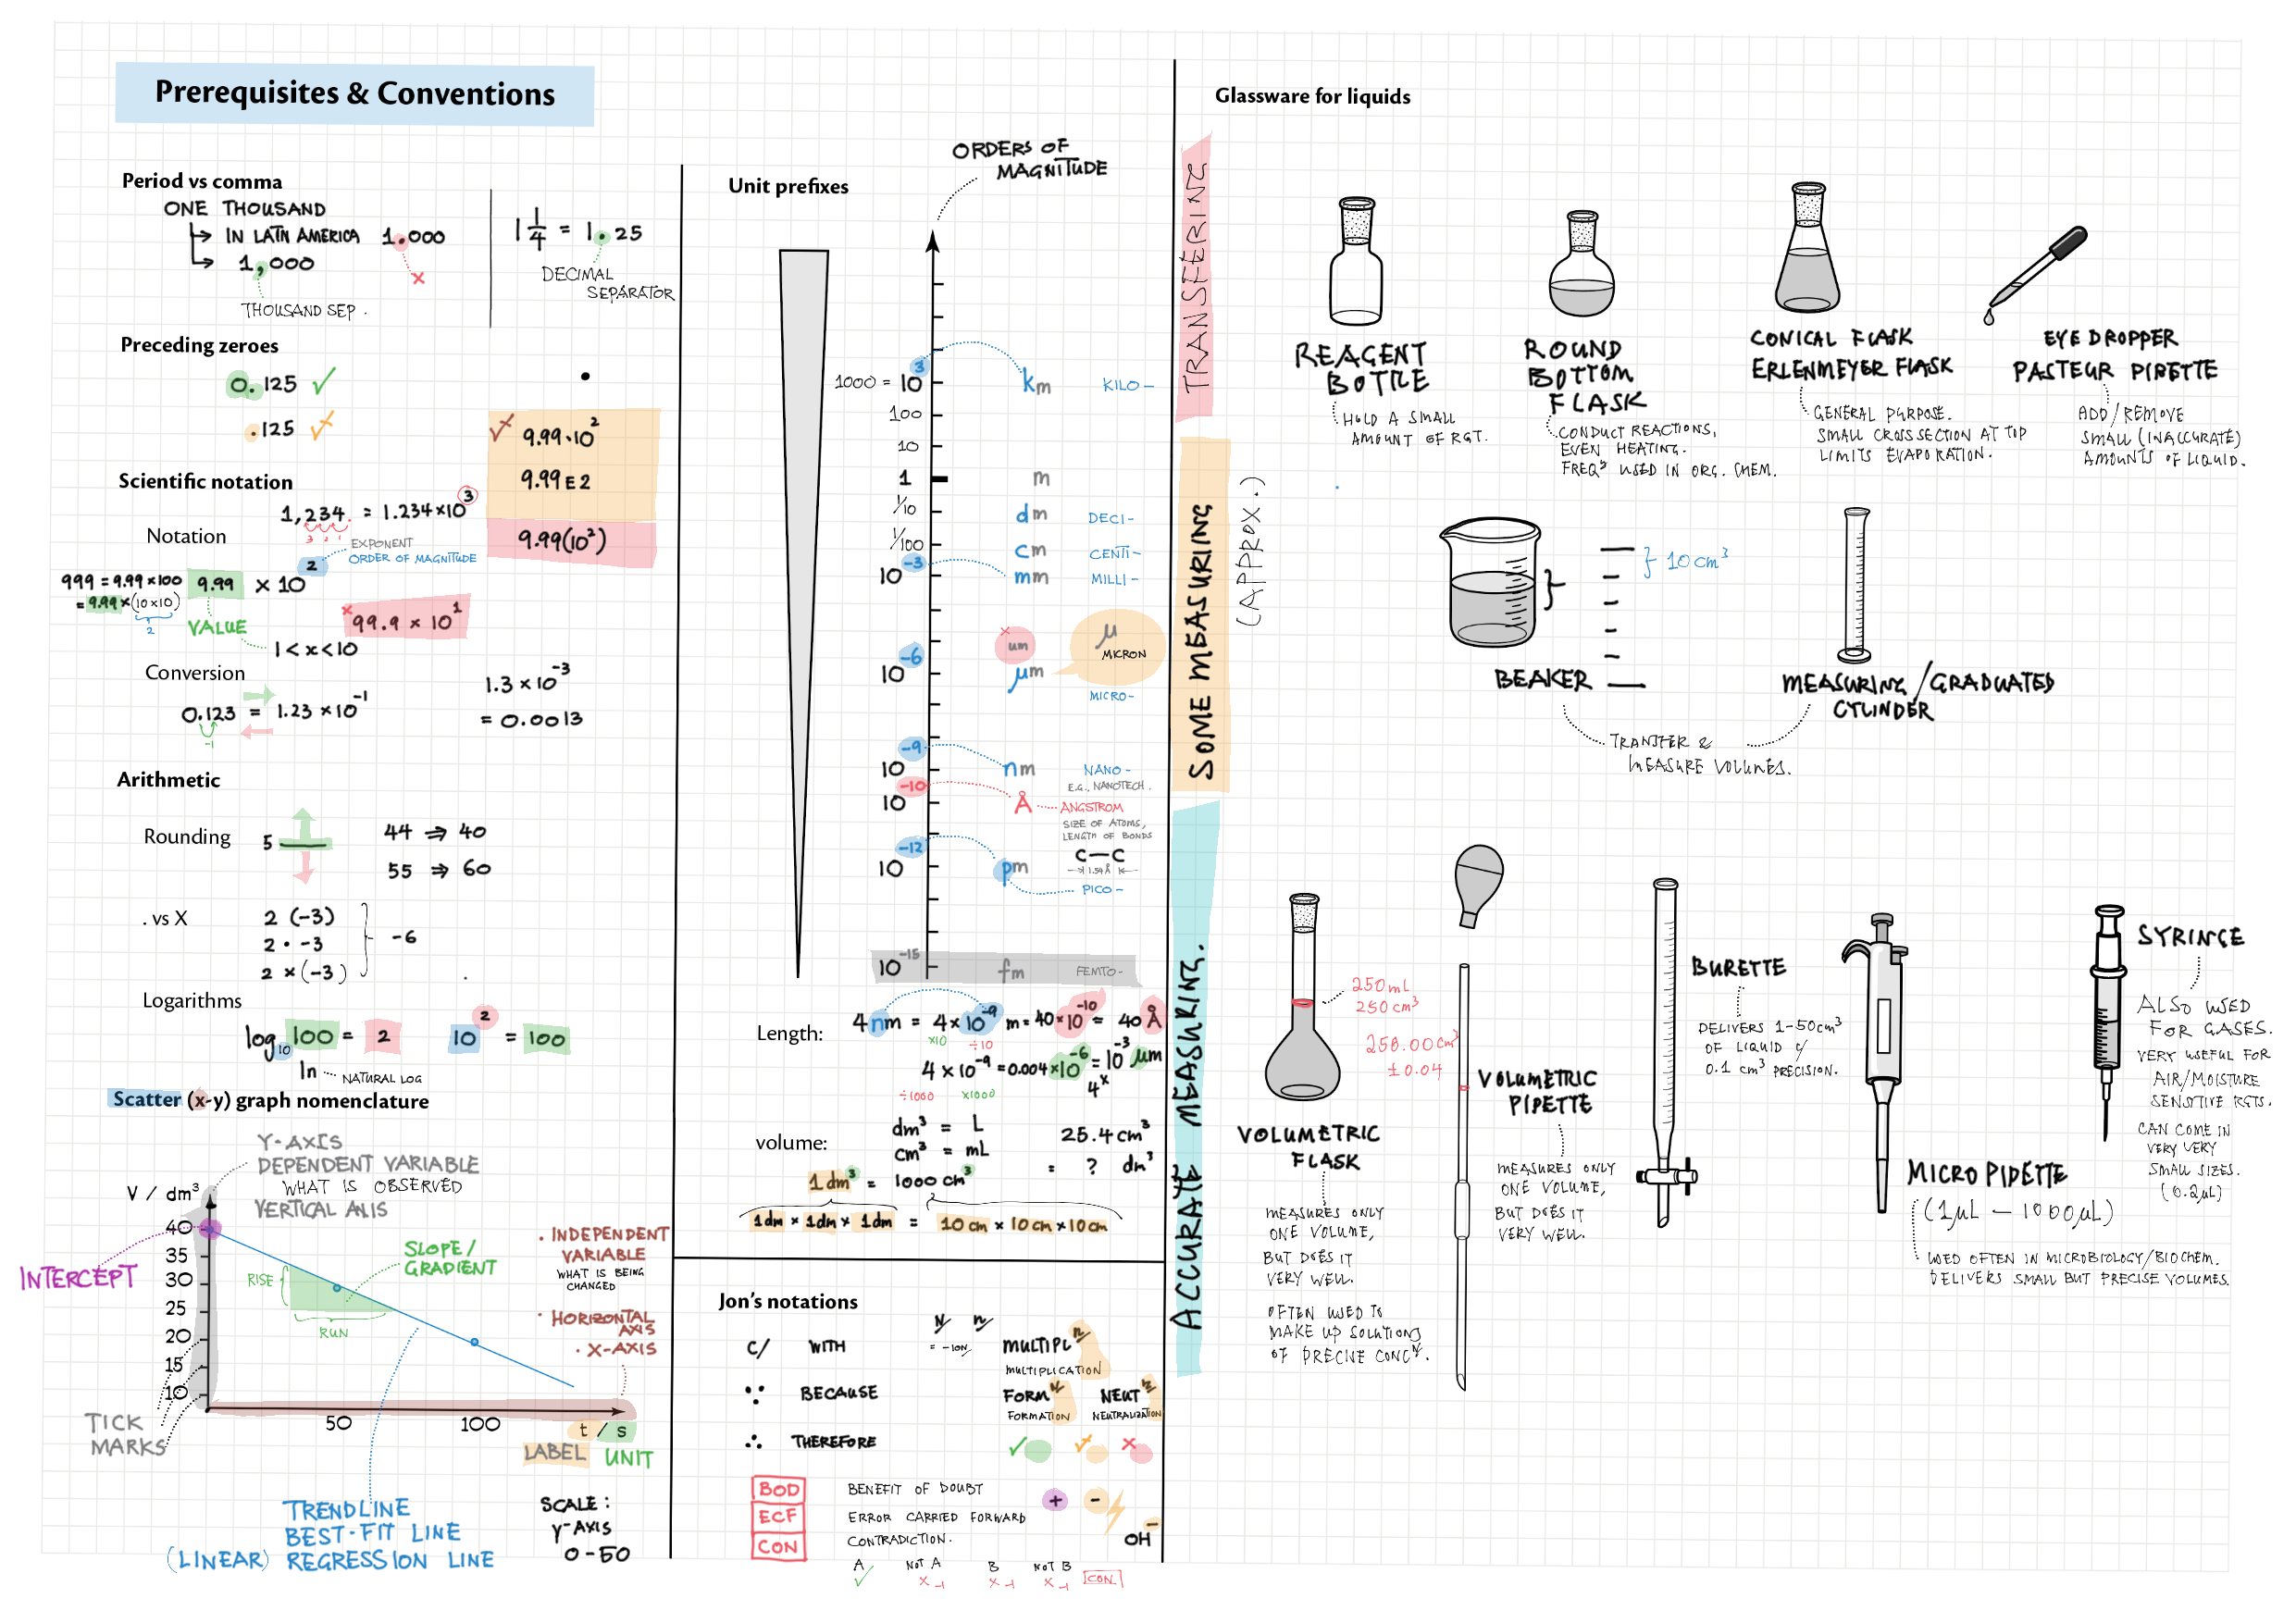 Prerequisites & Conventions
Period vs comma
ONE THOUSAND
IN LATIN AMERICA 1.000
1,000
×
THOUSAND SEP.
1 1/4 = 1.25
DECIMAL
SEPARATOR
Preceding zeroes
0.125 ✓
.125
9.99·10²
9.99 E 2
9.99(10²)
Scientific notation
1,234. = 1.234×10³
3 2 1
Notation
EXPONENT
ORDER OF MAGNITUDE
999 = 9.99×100
= 9.99×(10×10)
2
9.99 × 10²
VALUE
1 < x < 10
× 99.9 × 10¹
Conversion
0.123 = 1.23 ×10⁻¹
-1
1.3 × 10⁻³
= 0.0013
Arithmetic
Rounding
5
44 ⇒ 40
55 ⇒ 60
. vs X
2 (-3)
2 · -3
2 ×(-3)
-6
Logarithms
log₁₀ 100 = 2
10² = 100
ln
NATURAL LOG
Scatter (x-y) graph nomenclature
Y-AXIS
DEPENDENT VARIABLE
WHAT IS OBSERVED
VERTICAL AXIS
V / dm³
40
35
30
25
20
15
10
INTERCEPT
RISE
RUN
SLOPE/
GRADIENT
· INDEPENDENT
VARIABLE
WHAT IS BEING
CHANGED
· HORIZONTAL
AXIS
· X-AXIS
50
100
t / s
LABEL UNIT
TICK
MARKS
TRENDLINE
BEST-FIT LINE
(LINEAR) REGRESSION LINE
SCALE:
Y-AXIS
0-50
Unit prefixes
ORDERS OF
MAGNITUDE
1000 = 10³ km KILO-
100
10
1 m
1/10 dm DECI-
1/100 cm CENTI-
10⁻³ mm MILLI-
× um
μ
MICRON
10⁻⁶ μm
MICRO-
10⁻⁹ nm NANO-
E.G., NANOTECH.
10⁻¹⁰ Å ANGSTROM
SIZE OF ATOMS,
LENGTH OF BONDS
C—C
1.54Å
10⁻¹² pm
PICO-
10⁻¹⁵ fm FEMTO-
Length:
4nm = 4×10⁻⁹ m = 40×10⁻¹⁰ = 40 Å
×10 ÷10
4 × 10⁻⁹ = 0.004×10⁻⁶ = 10⁻³ μm
4×
÷1000 ×1000
volume:
dm³ = L
cm³ = mL
25.4 cm³
= ? dm³
1 dm³ = 1000 cm³
1dm × 1dm × 1dm = 10 cm × 10 cm × 10 cm
Jon's notations
c/ WITH
N/ n/
= -ION
MULTIPLn/
MULTIPLICATION
∵ BECAUSE
FORMn/
FORMATION
NEUTn/
NEUTRALIZATION
∴ THEREFORE
✓ ×
BOD BENEFIT OF DOUBT
ECF ERROR CARRIED FORWARD
CON CONTRADICTION.
+ -
OH⁻
A NOT A B NOT B
✓ ×-1 ×-1 ×-1 CON.
Glassware for liquids
TRANSFERING
REAGENT
BOTTLE
HOLD A SMALL
AMOUNT OF RGT.
ROUND
BOTTOM
FLASK
CONDUCT REACTIONS,
EVEN HEATING.
FREQ⁵ USED IN ORG. CHEM.
CONICAL FLASK
ERLENMEYER FLASK
GENERAL PURPOSE.
SMALL CROSS SECTION AT TOP
LIMITS EVAPORATION.
EYE DROPPER
PASTEUR PIPETTE
ADD/REMOVE
SMALL (INACCURATE)
AMOUNTS OF LIQUID.
SOME MEASURING
(APPROX.)
BEAKER
10 cm³
MEASURING/GRADUATED
CYLINDER
TRANSFER &
MEASURE VOLUMES.
ACCURATE MEASURING.
VOLUMETRIC
FLASK
MEASURES ONLY
ONE VOLUME,
BUT DOES IT
VERY WELL.
OFTEN USED TO
MAKE UP SOLUTIONS
OF PRECISE CONCN.
250mL
250 cm³
250.00cm³
±0.04
VOLUMETRIC
PIPETTE
MEASURES ONLY
ONE VOLUME,
BUT DOES IT
VERY WELL.
BURETTE
DELIVERS 1-50cm³
OF LIQUID c/
0.1 cm³ PRECISION.
MICRO PIPETTE
(1μL — 1000μL)
USED OFTEN IN MICROBIOLOGY/BIOCHEM.
DELIVERS SMALL BUT PRECISE VOLUMES.
SYRINGE
ALSO USED
FOR GASES.
VERY USEFUL FOR
AIR/MOISTURE
SENSITIVE RGTS.
CAN COME IN
VERY VERY
SMALL SIZES.
(0.2μL)